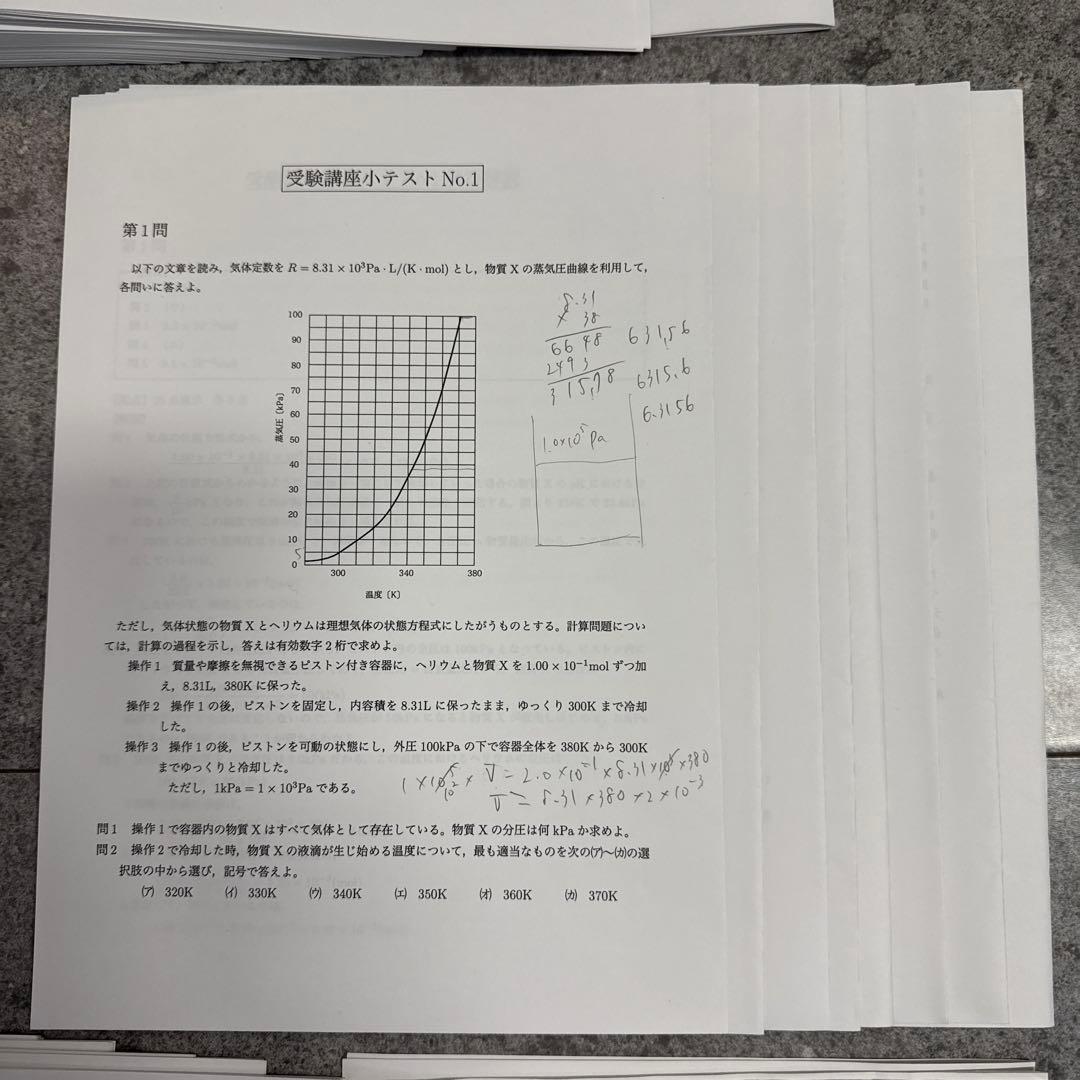 受験講座小テスト No.1
第1問
以下の文章を読み，気体定数を R = 8.31 × 10³Pa・L/(K・mol) とし，物質 X の蒸気圧曲線を利用して，
各問いに答えよ。
100
90
80
70
60
50
40
30
20
10
0
蒸気圧〔kPa〕
5
300
340
380
温度〔K〕
8.31
× 38
6648
2493
315,78
631,56
6315.6
6.3156
1.0×10⁵ Pa
ただし，気体状態の物質 X とヘリウムは理想気体の状態方程式にしたがうものとする。計算問題につい
ては，計算の過程を示し，答えは有効数字 2 桁で求めよ。
操作 1　質量や摩擦を無視できるピストン付き容器に，ヘリウムと物質 X を 1.00 × 10⁻¹mol ずつ加
え，8.31L，380K に保った。
操作 2　操作 1 の後，ピストンを固定し，内容積を 8.31L に保ったまま，ゆっくり 300K まで冷却
した。
操作 3　操作 1 の後，ピストンを可動の状態にし，外圧 100kPa の下で容器全体を 380K から 300K
までゆっくりと冷却した。
ただし，1kPa = 1 × 10³Pa である。
1×10⁵ × V = 2.0×10⁻¹ × 8.31×10³×380
10²
V = 8.31×380×2×10⁻³
問 1　操作 1 で容器内の物質 X はすべて気体として存在している。物質 X の分圧は何 kPa か求めよ。
問 2　操作 2 で冷却した時，物質 X の液滴が生じ始める温度について，最も適当なものを次の(ア)～(カ)の選
択肢の中から選び，記号で答えよ。
(ア)　320K　(イ)　330K　(ウ)　340K　(エ)　350K　(オ)　360K　(カ)　370K